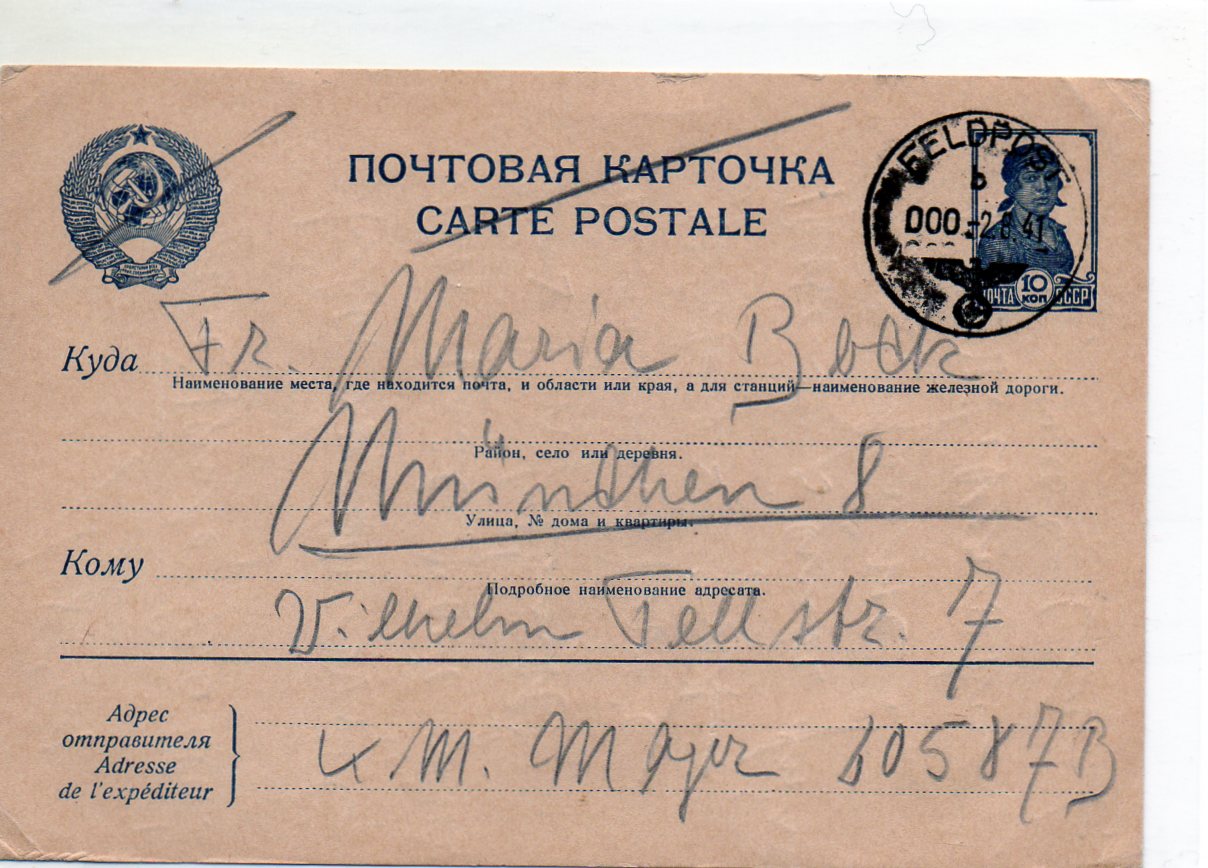 ПОЧТОВАЯ КАРТОЧКА
CARTE POSTALE
FELDPOST
b
000 -2.8.41
ПОЧТА 10 КОП СССР
Куда Fr. Maria Bock
Наименование места, где находится почта, и области или края, а для станций—наименование железной дороги.
Район, село или деревня.
München 8
Улица, № дома и квартиры.
Кому
Подробное наименование адресата.
Wilhelm Tellstr. 7
Адрес
отправителя
Adresse
de l'expéditeur
M. Mayer 60587B